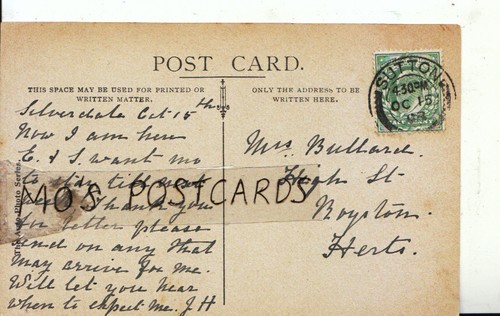 POST CARD.
THIS SPACE MAY BE USED FOR PRINTED OR
WRITTEN MATTER.
ONLY THE ADDRESS TO BE
WRITTEN HERE.
SUTTON
4.30PM
OC 15
Silverdale Oct 15th
Now I am here
E. & S. want me
to stay till next
Thank you
for letter please
send on any that
may arrive for me.
Will let you hear
when to expect me. J H
Mrs. Bullard.
High St
Royston.
Herts.
The Auto-Photo Series.
MO'S POSTCARDS